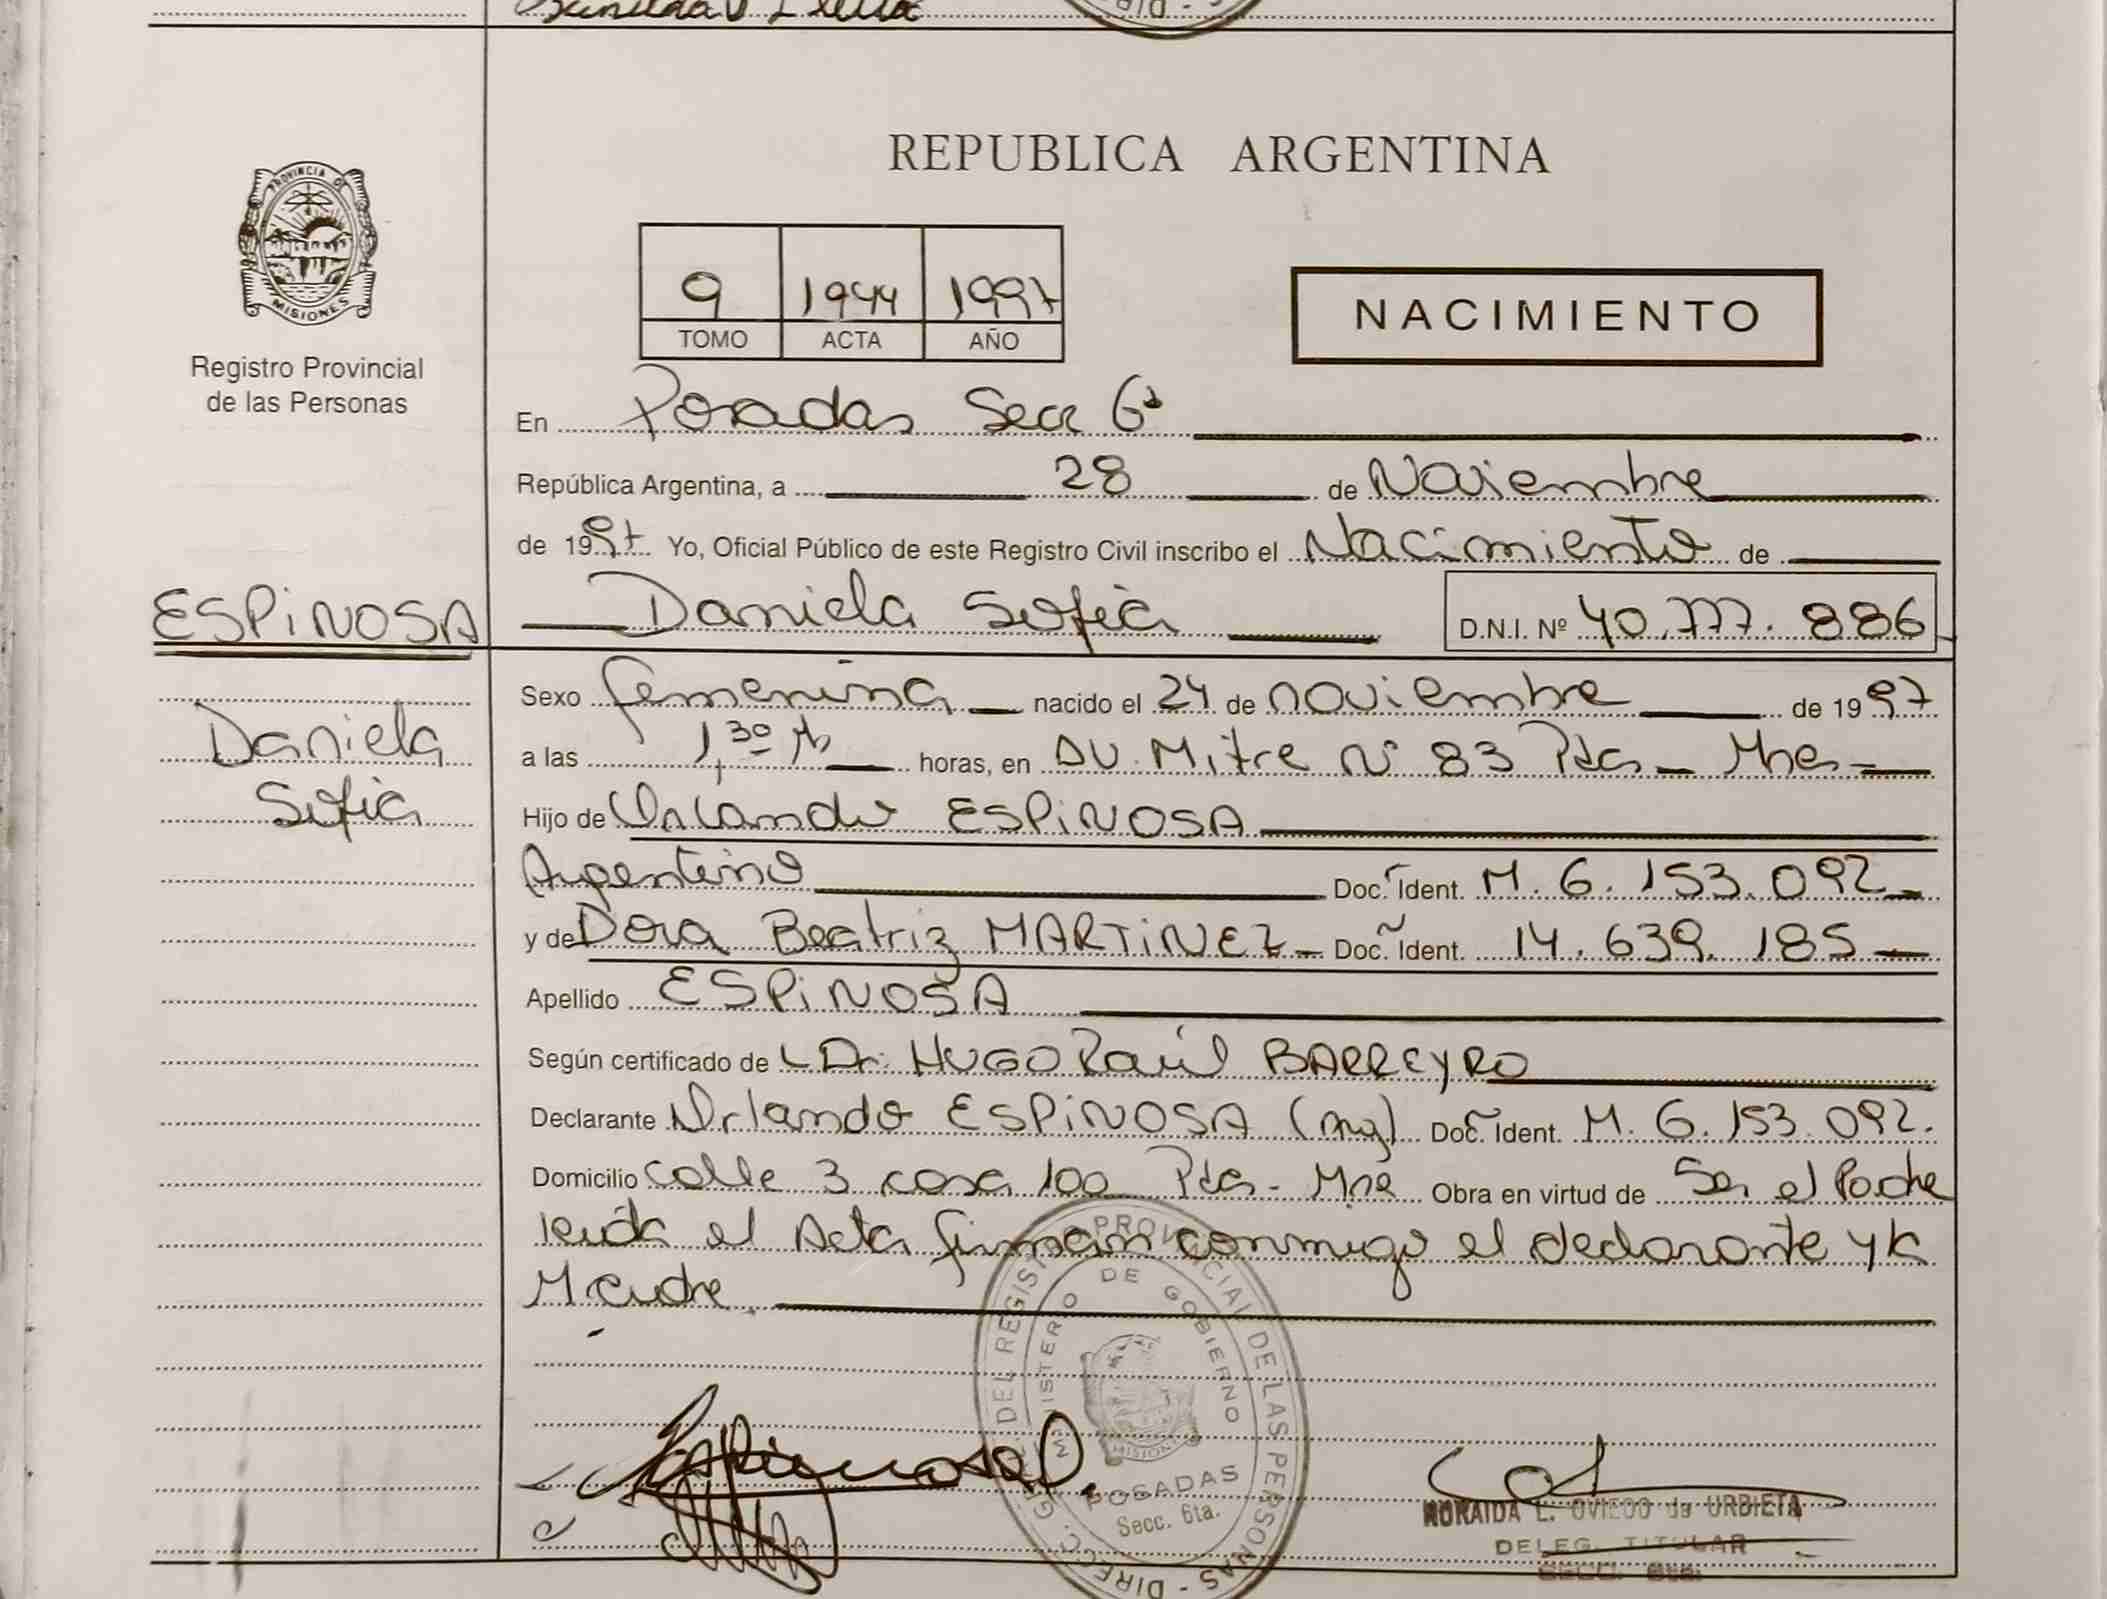 PROVINCIA DE
MISIONES
Registro Provincial
de las Personas
REPUBLICA ARGENTINA
9 1944 1997
TOMO ACTA AÑO
NACIMIENTO
En Posadas Secc 6ª
República Argentina, a 28 de Noviembre
de 1997 Yo, Oficial Público de este Registro Civil inscribo el Nacimiento de
ESPINOSA Daniela Sofía D.N.I. Nº 40.777.886
Daniela
Sofia
Sexo femenina nacido el 24 de noviembre de 1997
a las 1,30 hs horas, en AV. Mitre Nº 83 Pdas - Mnes
Hijo de Orlando ESPINOSA
Argentino Doc. Ident. M. 6.153.092
y de Dora Beatriz MARTINEZ Doc. Ident. 14.639.185
Apellido ESPINOSA
Según certificado de Dr. HUGO Raúl BARREYRO
Declarante Orlando ESPINOSA (Arg) Doc. Ident. M. 6.153.092.
Domicilio calle 3 casa 100 Pdas - Mnes Obra en virtud de Ser el Padre
leída el Acta firman conmigo el declarante y la
Madre.
DIRECC. GRAL. DEL REGISTRO PROVINCIAL DE LAS PERSONAS
MINISTERIO DE GOBIERNO
MISIONES
POSADAS
Secc. 6ta.
Espinosa O.
NORAIDA L. OVIEDO de URBIETA
DELEG. TITULAR
SECC. 6ta.